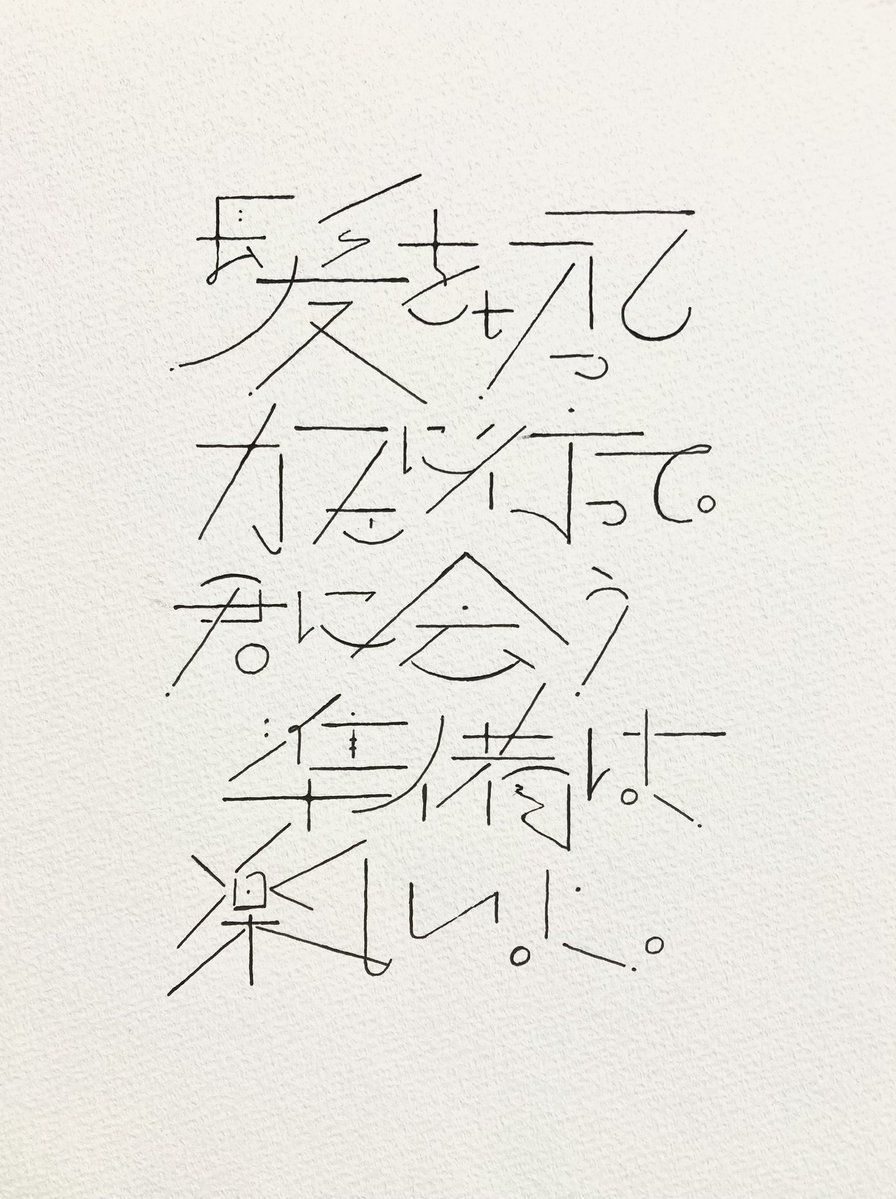 髪を切って
カフェに行って。
君に会う
準備は
楽しいよ。